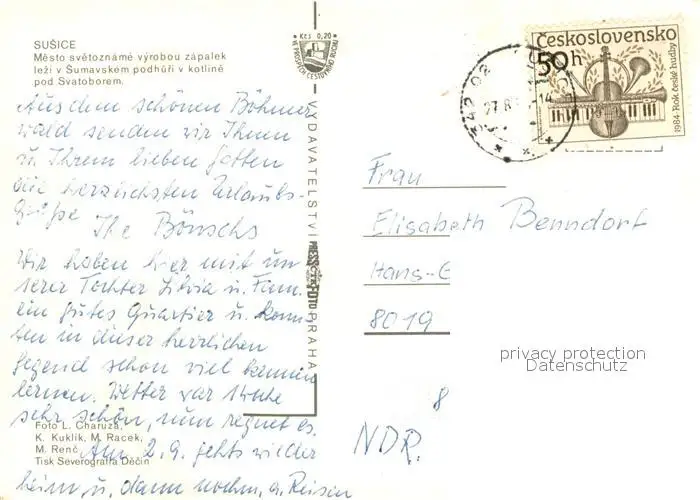 SUŠICE
Město světoznámé výrobou zápalek
leží v Šumavském podhůří v kotlině
pod Svatoborem.
Aus dem schönen Böhmer
wald senden wir Ihnen
u. Ihrem lieben Gatten
die herzlichsten Urlaubs-
grüße
Ihre Bönschs
Wir haben hier mit un
serer Tochter Silvia u. Fam.
ein gutes Quartier u. konn-
ten in dieser herrlichen
Gegend schon viel kennen
lernen. Wetter war 1 Woche
sehr schön, nun regnet es.
Am 2.9. gehts wieder
heim u. dann nochm. a. Reisen
Foto L. Charuza,
K. Kuklík, M. Racek,
M. Renč
Tisk Severografia Děčín
Kčs 0,20
VE PROSPĚCH CESTOVNÍHO RUCHU
VYDAVATELSTVÍ PRESSFOTO PRAHA
Československo
50h
1984 · Rok české hudby
27.8
14
Frau
Elisabeth Benndorf
Hans-
8019
8
NDR.
privacy protection
Datenschutz